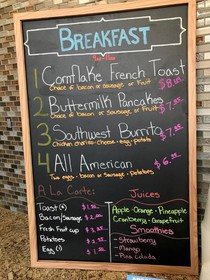 BREAKFAST
1 Cornflake French Toast $8.00
Choice of bacon or sausage or fruit
2 Buttermilk Pancakes $7.00
Choice of bacon or sausage or fruit
3 Southwest Burrito $7.00
Chicken chorizo-cheese-egg-potato
4 All American $6.00
Two eggs - bacon or sausage - potatoes
A La Carte:
Toast $1.00
Bacon/sausage $2.00
Fresh fruit cup $3.00
Potatoes
Egg (1) $1.00
Juices
Apple-Orange-Pineapple
Cranberry-Grapefruit
Smoothies
-Strawberry
-Mango
-Pina colada